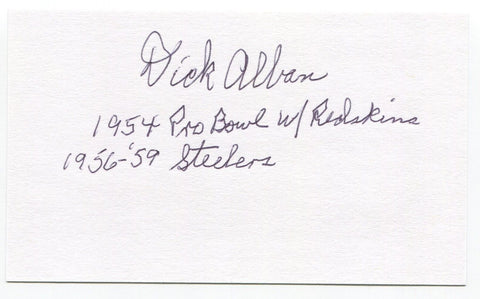 Dick Alban
1954 Pro Bowl w/ Redskins
1956-'59 Steelers